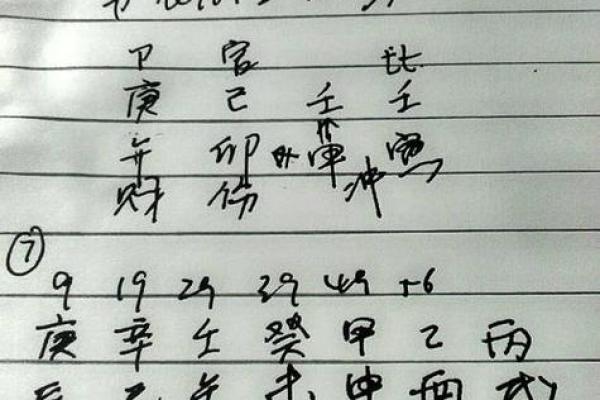 卩 官 比
庚 己 壬 壬
午 卯 申 寅
财 伤 冲
⑦
9 19 29 39 49
庚 辛 壬 癸 甲 乙 丙
午 未 申 酉 戌